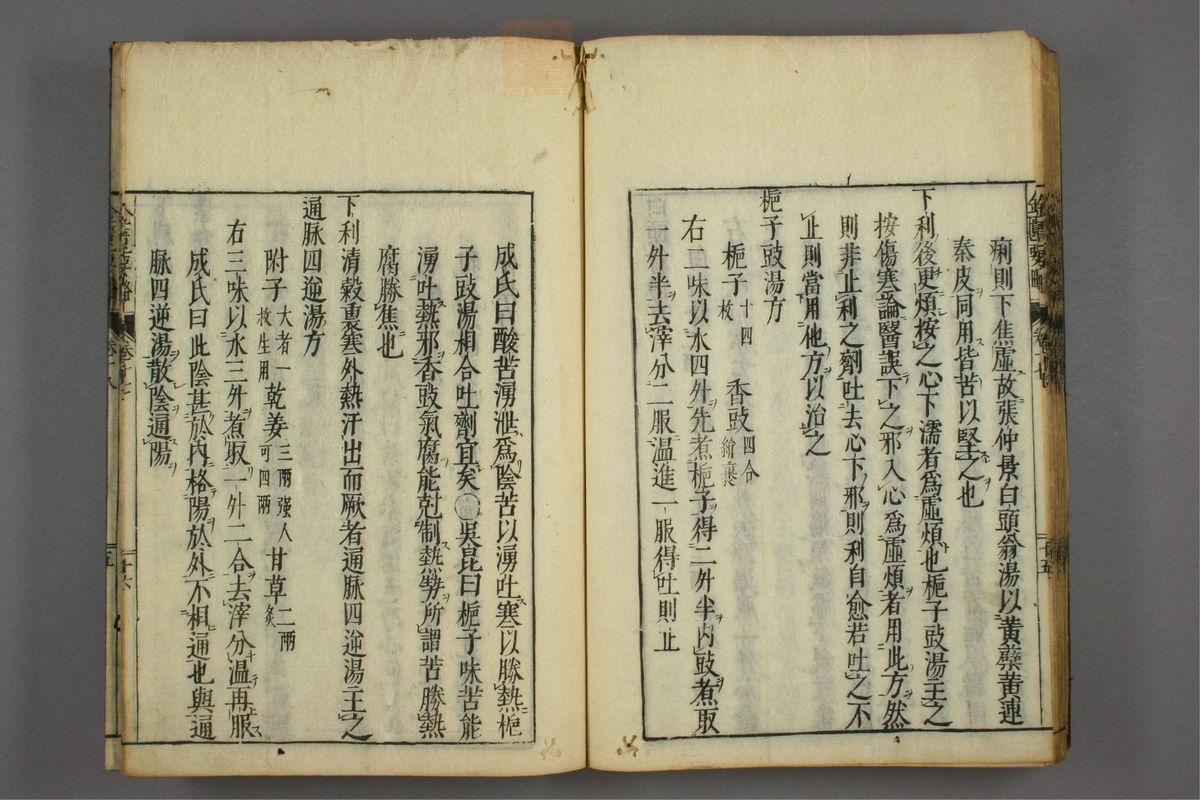 痢則下焦虛故張仲景白頭翁湯以黃蘗黃連
秦皮同用皆苦以堅之也
下利後更煩按之心下濡者爲虛煩也梔子豉湯主之
按傷寒論醫誤下之邪入心爲虛煩者用此方然
則非止利之劑吐去心下邪則利自愈若吐之不
止則當用他方以治之
梔子豉湯方
梔子十四枚 香豉四合綿裹
右二味以水四升先煮梔子得二升半内豉煮取
一升半去滓分二服温進一服得吐則止
成氏曰酸苦湧泄爲陰苦以湧吐寒以勝熱梔
子豉湯相合吐劑宜矣 吳昆曰梔子味苦能
湧吐熱邪香豉氣腐能尅制熱勢所謂苦勝熱
腐勝焦也
下利清穀裏寒外熱汗出而厥者通脉四逆湯主之
通脉四逆湯方
附子大者一枚生用 乾姜三兩强人可四兩 甘草二兩炙
右三味以水三升煮取一升二合去滓分温再服
成氏曰此陰甚於内格陽於外不相通也與通
脉四逆湯散陰通陽